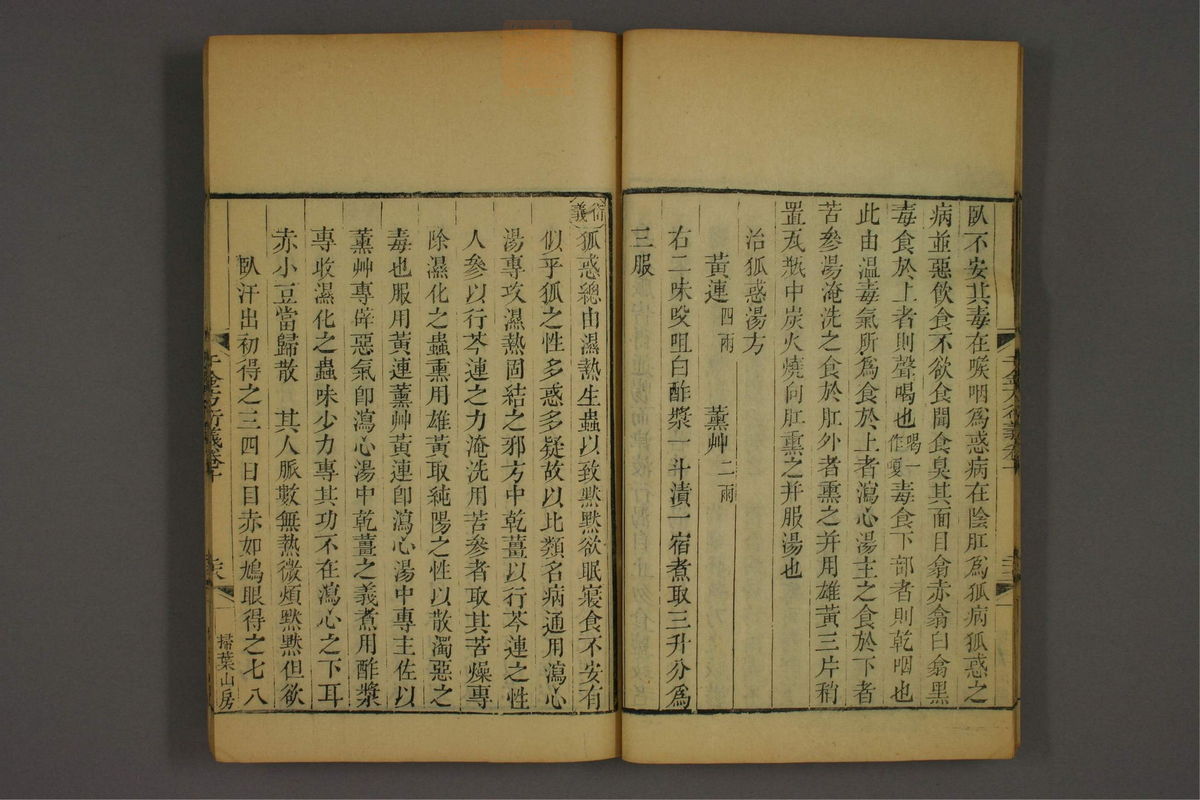 臥不安其毒在喉咽爲惑病在陰肛爲狐病狐惑之
病並惡飲食不欲食聞食臭其面目翕赤翕白翕黑
毒食於上者則聲喝也喝一作嗄毒食下部者則乾咽也
此由溫毒氣所爲食於上者瀉心湯主之食於下者
苦參湯淹洗之食於肛外者熏之并用雄黃三片稍
置瓦瓶中炭火燒向肛熏之并服湯也
治狐惑湯方
黃連四兩 薰艸二兩
右二味㕮咀白酢漿一斗漬一宿煮取三升分爲
三服
衍義狐惑總由濕熱生蟲以致默默欲眠寢食不安有
似乎狐之性多惑多疑故以比類名病通用瀉心
湯專攻濕熱固結之邪方中乾薑以行芩連之性
人參以行芩連之力淹洗用苦參者取其苦燥專
除濕化之蟲熏用雄黃取純陽之性以散濁惡之
毒也服用黃連薰艸黃連卽瀉心湯中專主佐以
薰艸專辟惡氣卽瀉心湯中乾薑之義煮用酢漿
專收濕化之蟲味少力專其功不在瀉心之下耳
赤小豆當歸散 其人脈數無熱微煩默默但欲
臥汗出初得之三四日目赤如鳩眼得之七八
千金方衍義卷十
掃葉山房